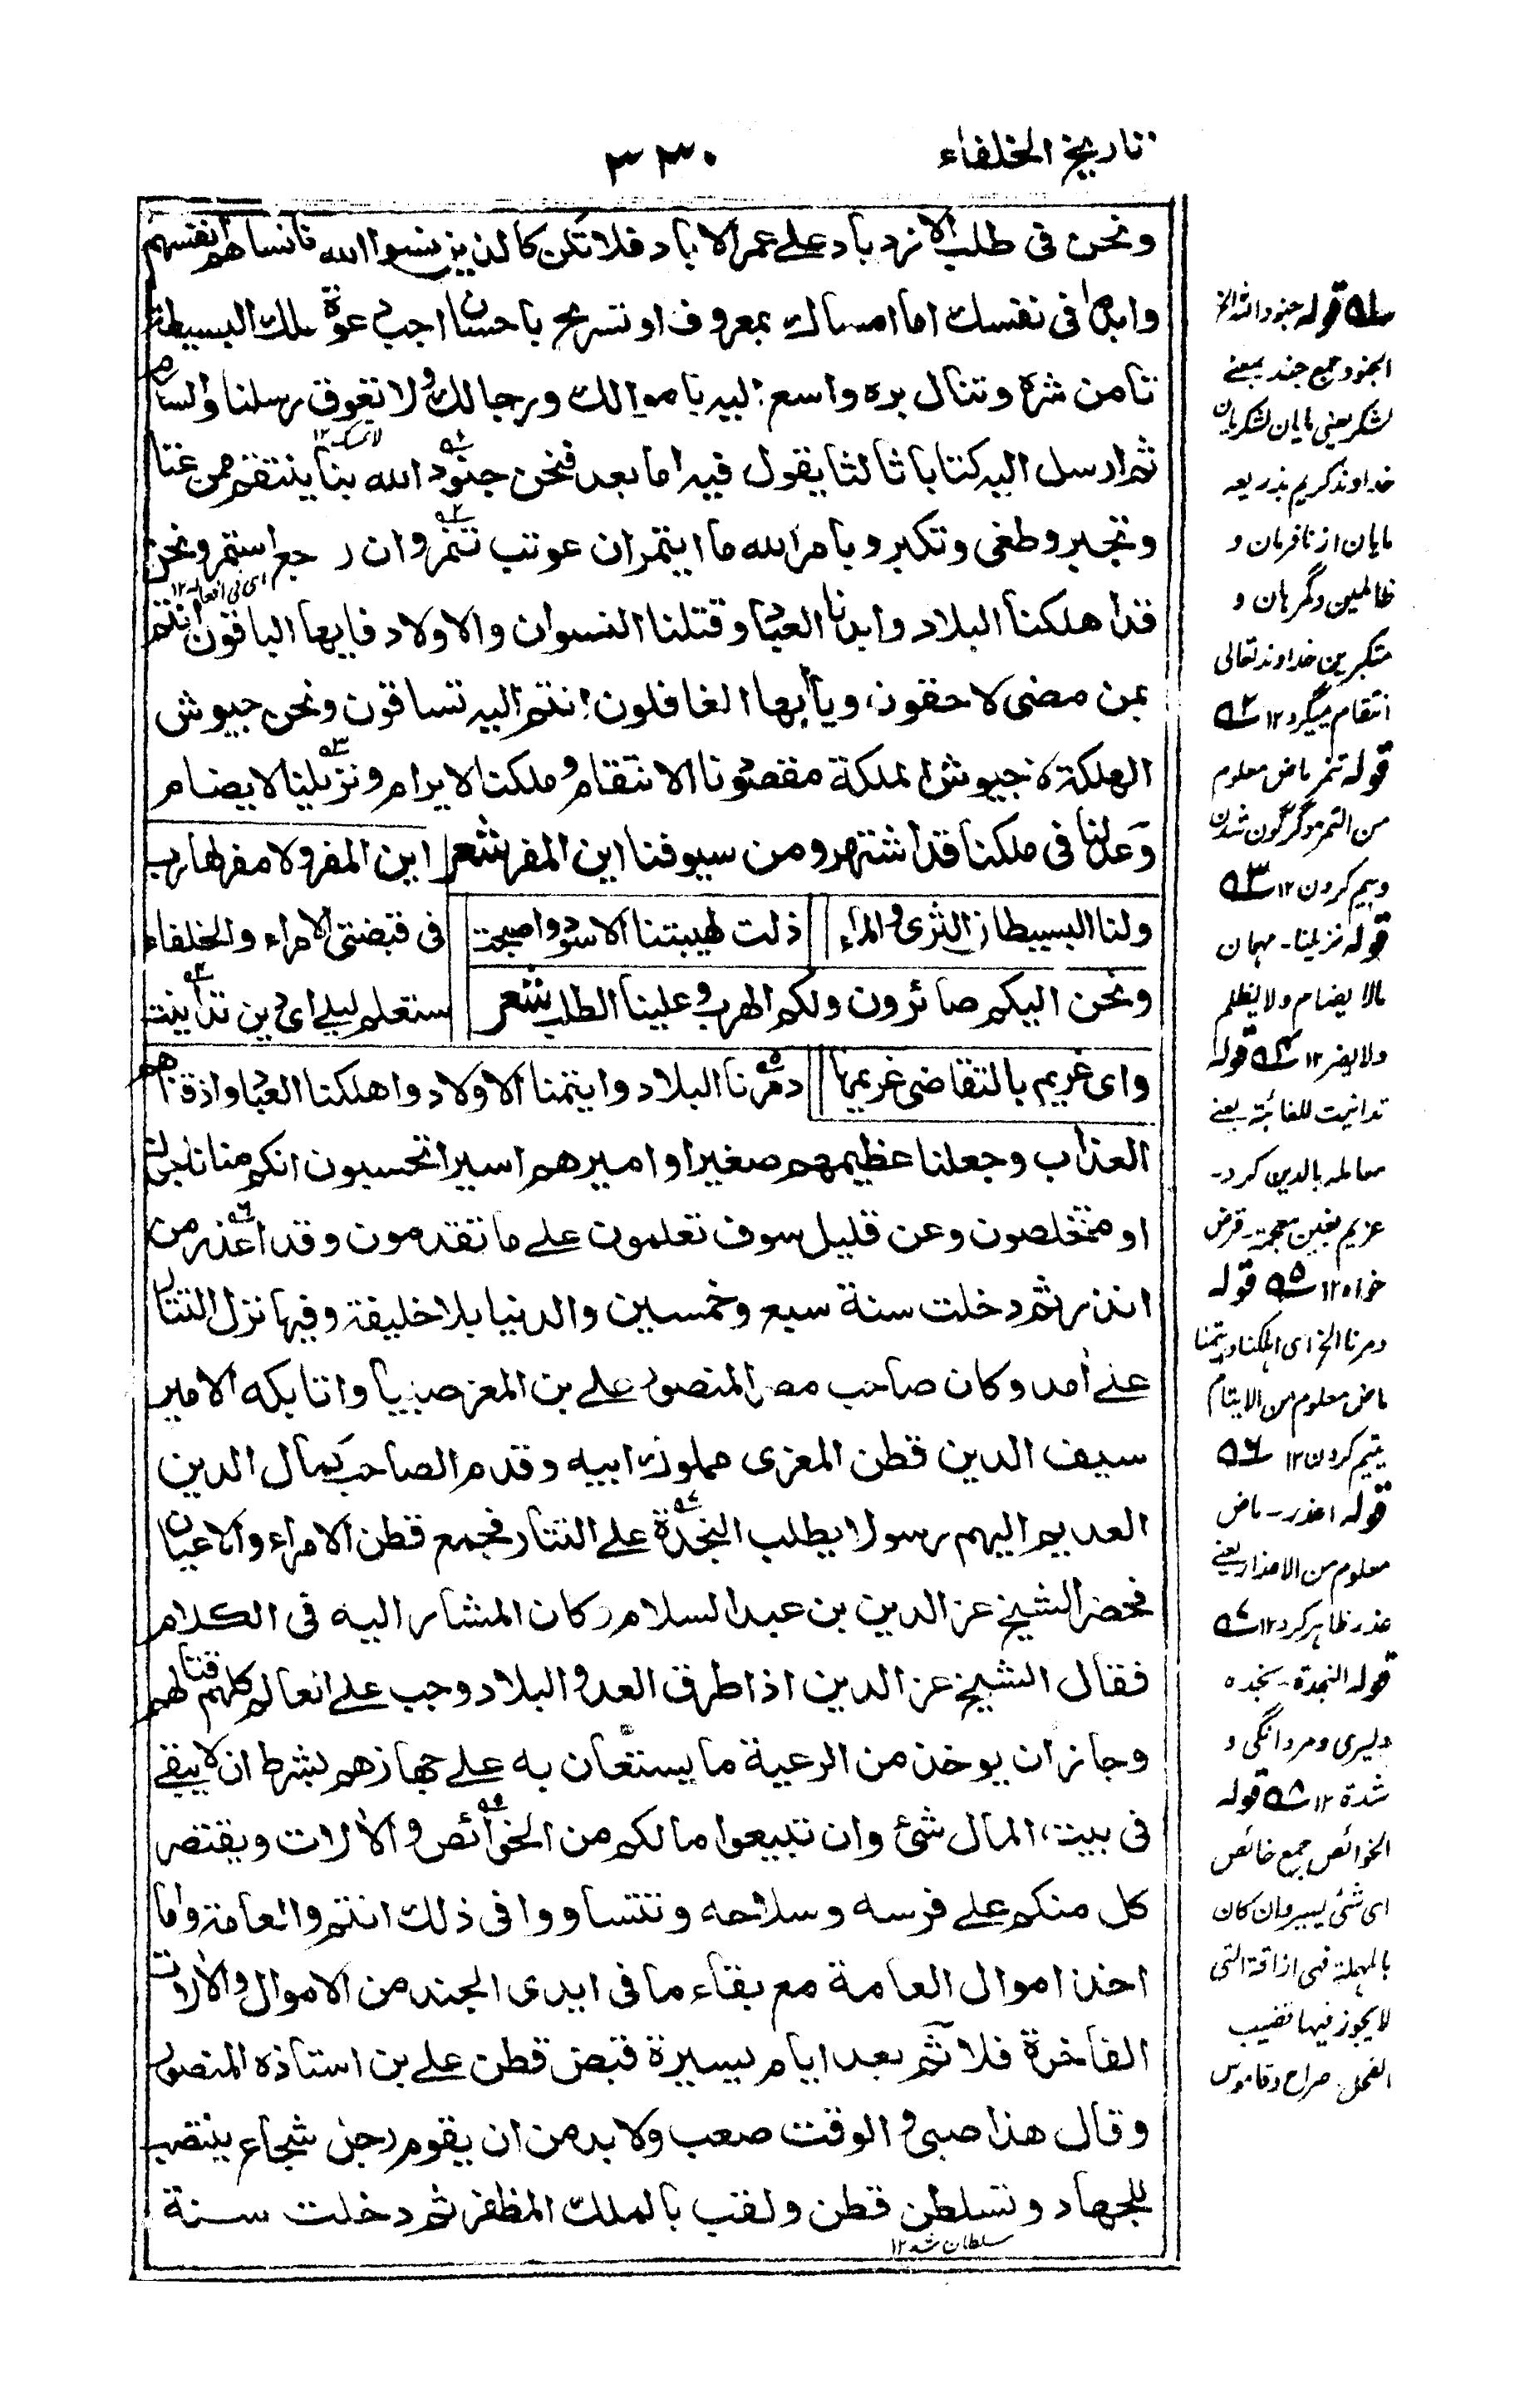 تاريخ الخلفاء
٣٣٠
ونحن فى طلب الازدياد على عمر الاباد فلا تكن كالذين نسوا الله فانساهم انفسهم
وابد ما فى نفسك اما امساك بمعروف او تسريح باحسان اجب دعوة ملك البسيطة
تامن شره وتنال بره واسع اليه باموالك ورجالك ولا تعوق رسلنا والسلام
ثم ارسل اليه كتابا ثالثا يقول فيه اما بعد فنحن جنود الله بنا ينتقم ممن عتا
وتجبر وطغى وتكبر وبامر الله ما ايتمر ان عوتب تنمر وان رجع استمر ونحن
قد اهلكنا البلاد وابدنا العباد وقتلنا النسوان والاولاد فايها الباقون انتم
بمن مضى لاحقون ويا ايها الغافلون انتم اليه تساقون ونحن جيوش
الهلكة لا جيوش الملكة مقصودنا الانتقام وملكنا لا يرام ونزيلنا لا يضام
وعدلنا فى ملكنا قد اشتهر ومن سيوفنا اين المفر شعر اين المفر ولا مفر لهارب
ولنا البسيطان الثرى والماء ذلت لهيبتنا الاسود واصبحت فى قبضتى الامراء والخلفاء
ونحن اليكم صائرون ولكم الهرب وعلينا الطلب شعر ستعلم ليلى اى دين تداينت
واى غريم بالتقاضى غريمها دمرنا البلاد وايتمنا الاولاد واهلكنا العباد واذقناهم
العذاب وجعلنا عظيمهم صغيرا واميرهم اسيرا تحسبون انكم منا ناجون
او متخلصون وعن قليل سوف تعلمون على ما تقدمون وقد اعذر من
انذر ثم دخلت سنة سبع وخمسين والدنيا بلا خليفة وفيها نزل التتار
على آمد وكان صاحب مصر المنصور على بن المعز صبيا واتابكه الامير
سيف الدين قطن المعزى مملوك ابيه وقدم الصاحب كمال الدين
العديم اليهم رسولا يطلب النجدة على التتار فجمع قطن الامراء والاعيان
فحضر الشيخ عز الدين بن عبد السلام وكان المشار اليه فى الكلام
فقال الشيخ عز الدين اذا طرق العدو البلاد وجب على العالم كلهم قتالهم
وجاز ان يوخذ من الرعية ما يستعان به على جهازهم بشرط ان لا يبقى
فى بيت المال شئ وان تبيعوا ما لكم من الخوائص والآلات ويقتصر
كل منكم على فرسه وسلاحه وتتساووا فى ذلك انتم والعامة واما
اخذ اموال العامة مع بقاء ما فى ايدى الجند من الاموال والآلات
الفاخرة فلا ثم بعد ايام يسيرة قبض قطن على بن استاذه المنصور
وقال هذا صبى والوقت صعب ولا بد من ان يقوم رجل شجاع ينتصب
للجهاد وتسلطن قطن ولقب بالملك المظفر ثم دخلت سنة
سلطان شد ١٢
سله قوله جنود الله الخ
الجنود جمع جند بمعنى
لشكر يعنى مايان لشكريان
خداوند كريم بذريعه
مايان از نافرمان و
ظالمين و گمرہان و
متكبرين خداوند تعالى
انتقام ميگيرد ١٢ ٢ه
قوله تنمر ماض معلوم
من التنمر دگرگون شدن
وبيم كردن ١٢ ٣ه
قوله نزيلنا ـ مهمان
مالا يضام ولا يظلم
ولا يضر ١٢ ٤ه قوله
تداينت للغائبة يعنى
معامله بالدين كرد ـ
غريم بغين معجمة ـ قرض
خواه ١٢ ٥ه قوله
دمرنا الخ اى اهلكنا وايتمنا
ماض معلوم من الايتام
يتيم كردن ١٢ ٦ه
قوله اعذر ـ ماض
معلوم من الاعذار يعنى
عذر ظاہر كرد ١٢ ٧ه
قوله النجدة ـ نجده
دليرى ومردانگى و
شدة ١٢ ٨ه قوله
الخوائص جمع خائص
اى شئ يسير وان كان
بالمهملة فهى الناقة التى
لا يجوز فيها قضيب
الفحل صراح وقاموس